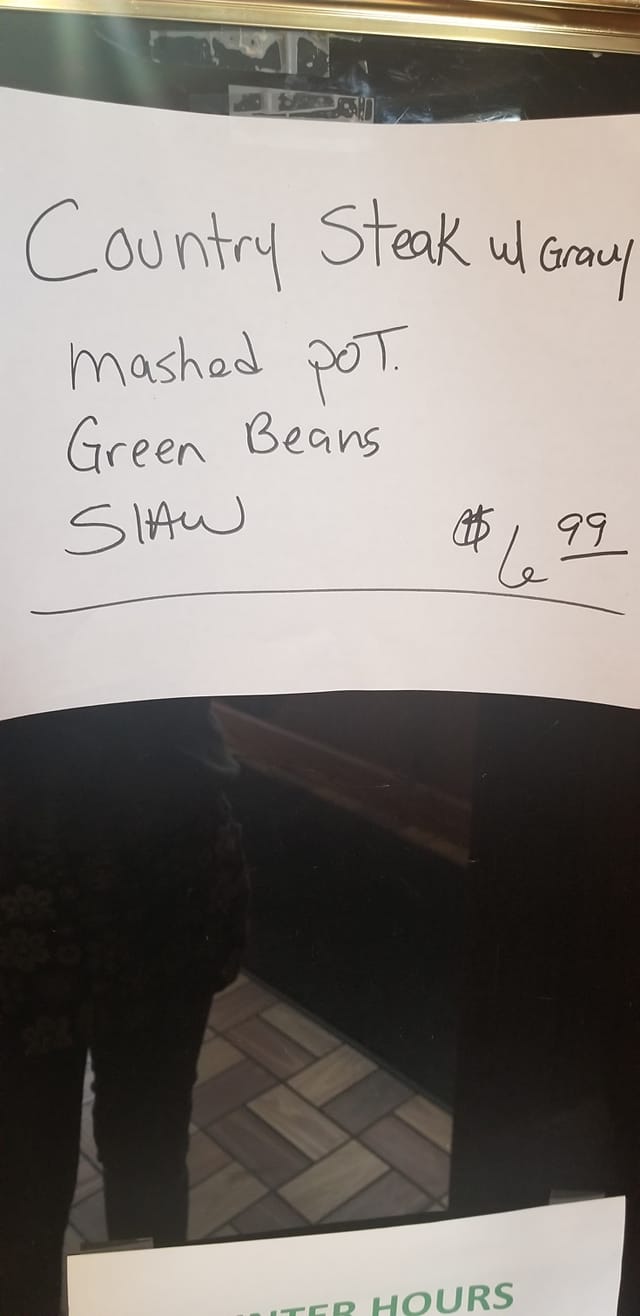 Country Steak w/ Gravy
mashed poT.
Green Beans
SlAW
$6 99
HOURS